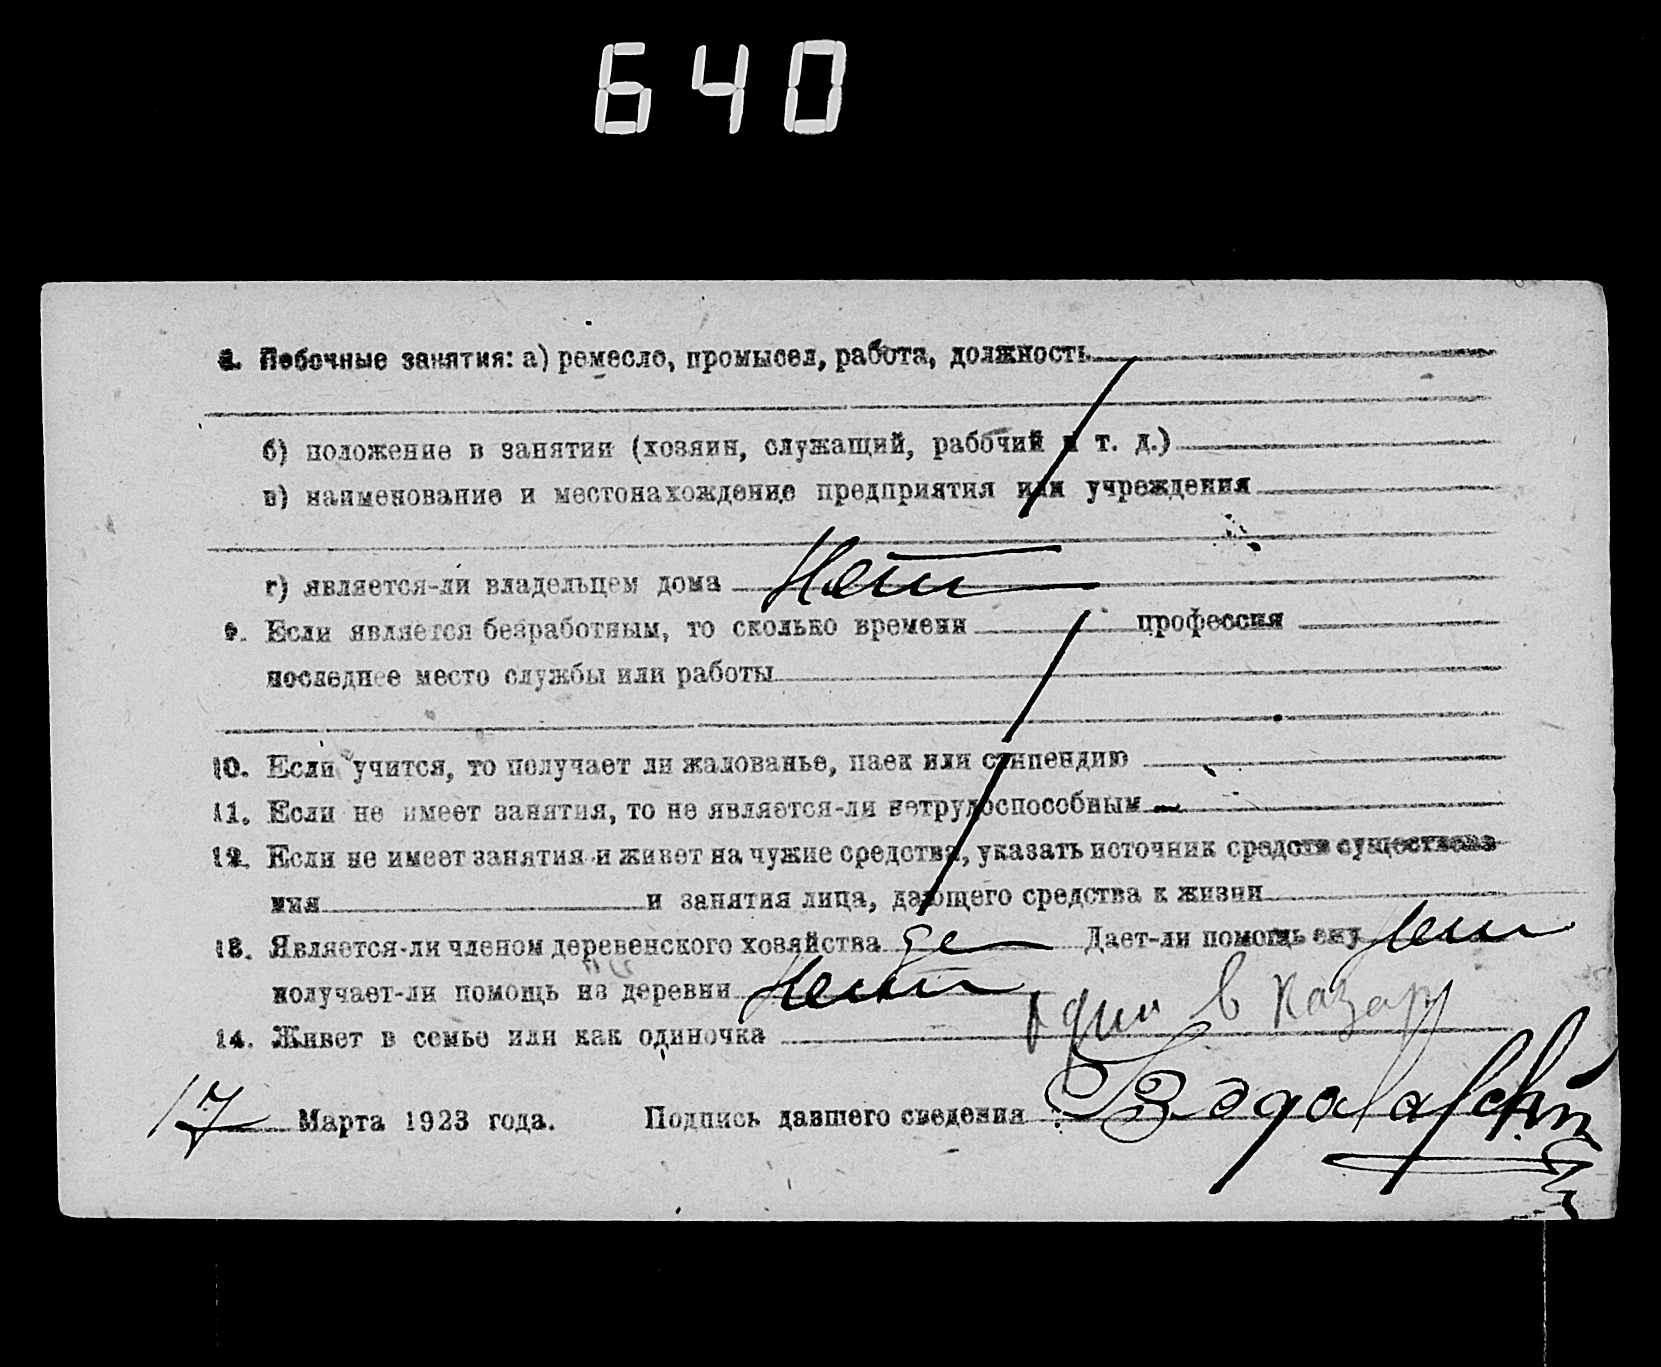 640
8. Побочные занятия: а) ремесло, промысел, работа, должность
б) положение в занятии (хозяин, служащий, рабочий и т. д.)
в) наименование и местонахождение предприятия или учреждения
г) является-ли владельцем дома Нет
9. Если является безработным, то сколько времени профессия
последнее место службы или работы
10. Если учится, то получает ли жалованье, паек или стипендию
11. Если не имеет занятия, то не является-ли нетрудоспособным —
12. Если не имеет занятия и живет на чужие средства, указать источник средств существова
ния и занятия лица, дающего средства к жизни
13. Является-ли членом деревенского хозяйства Дает-ли помощь ему Нет
получает-ли помощь из деревни Нет
14. Живет в семье или как одиночка один в казар
17 Марта 1923 года. Подпись давшего сведения :